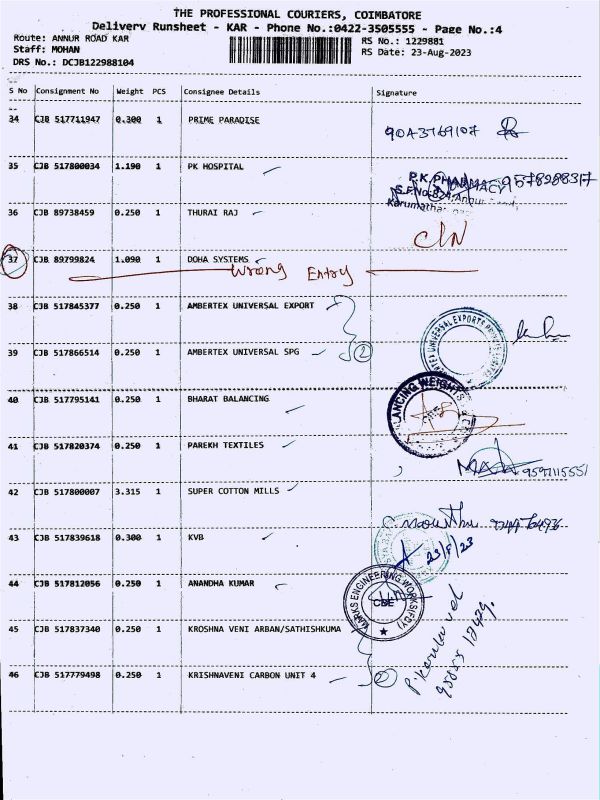 THE PROFESSIONAL COURIERS, COIMBATORE
Delivery Runsheet - KAR - Phone No.:0422-3505555 - Page No.:4
Route: ANNUR ROAD KAR
RS No.: 1229881
Staff: MOHAN
RS Date: 23-Aug-2023
DRS No.: DCJB122988104
S No Consignment No Weight PCS Consignee Details Signature
34 CJB 517711947 0.300 1 PRIME PARADISE
35 CJB 517800034 1.190 1 PK HOSPITAL
P.K.PHARMACY
36 CJB 89738459 0.250 1 THURAI RAJ
37 CJB 89799824 1.090 1 DOHA SYSTEMS
Wrong Entry
38 CJB 517845377 0.250 1 AMBERTEX UNIVERSAL EXPORT
39 CJB 517866514 0.250 1 AMBERTEX UNIVERSAL SPG 2
40 CJB 517795141 0.250 1 BHARAT BALANCING
41 CJB 517820374 0.250 1 PAREKH TEXTILES
9597115551
42 CJB 517800007 3.315 1 SUPER COTTON MILLS
43 CJB 517839618 0.300 1 KVB
23/8/23
44 CJB 517812056 0.250 1 ANANDHA KUMAR
CBE
45 CJB 517837340 0.250 1 KROSHNA VENI ARBAN/SATHISHKUMA
46 CJB 517779498 0.250 1 KRISHNAVENI CARBON UNIT 4 2